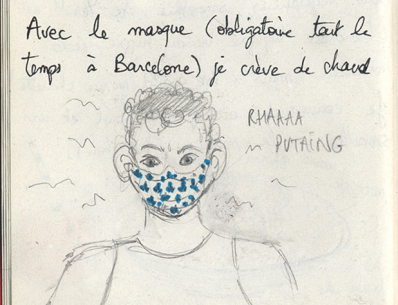 Avec le masque (obligatoire tout le
temps à Barcelone) je crève de chaud
RHAAAA
PUTAÏNG